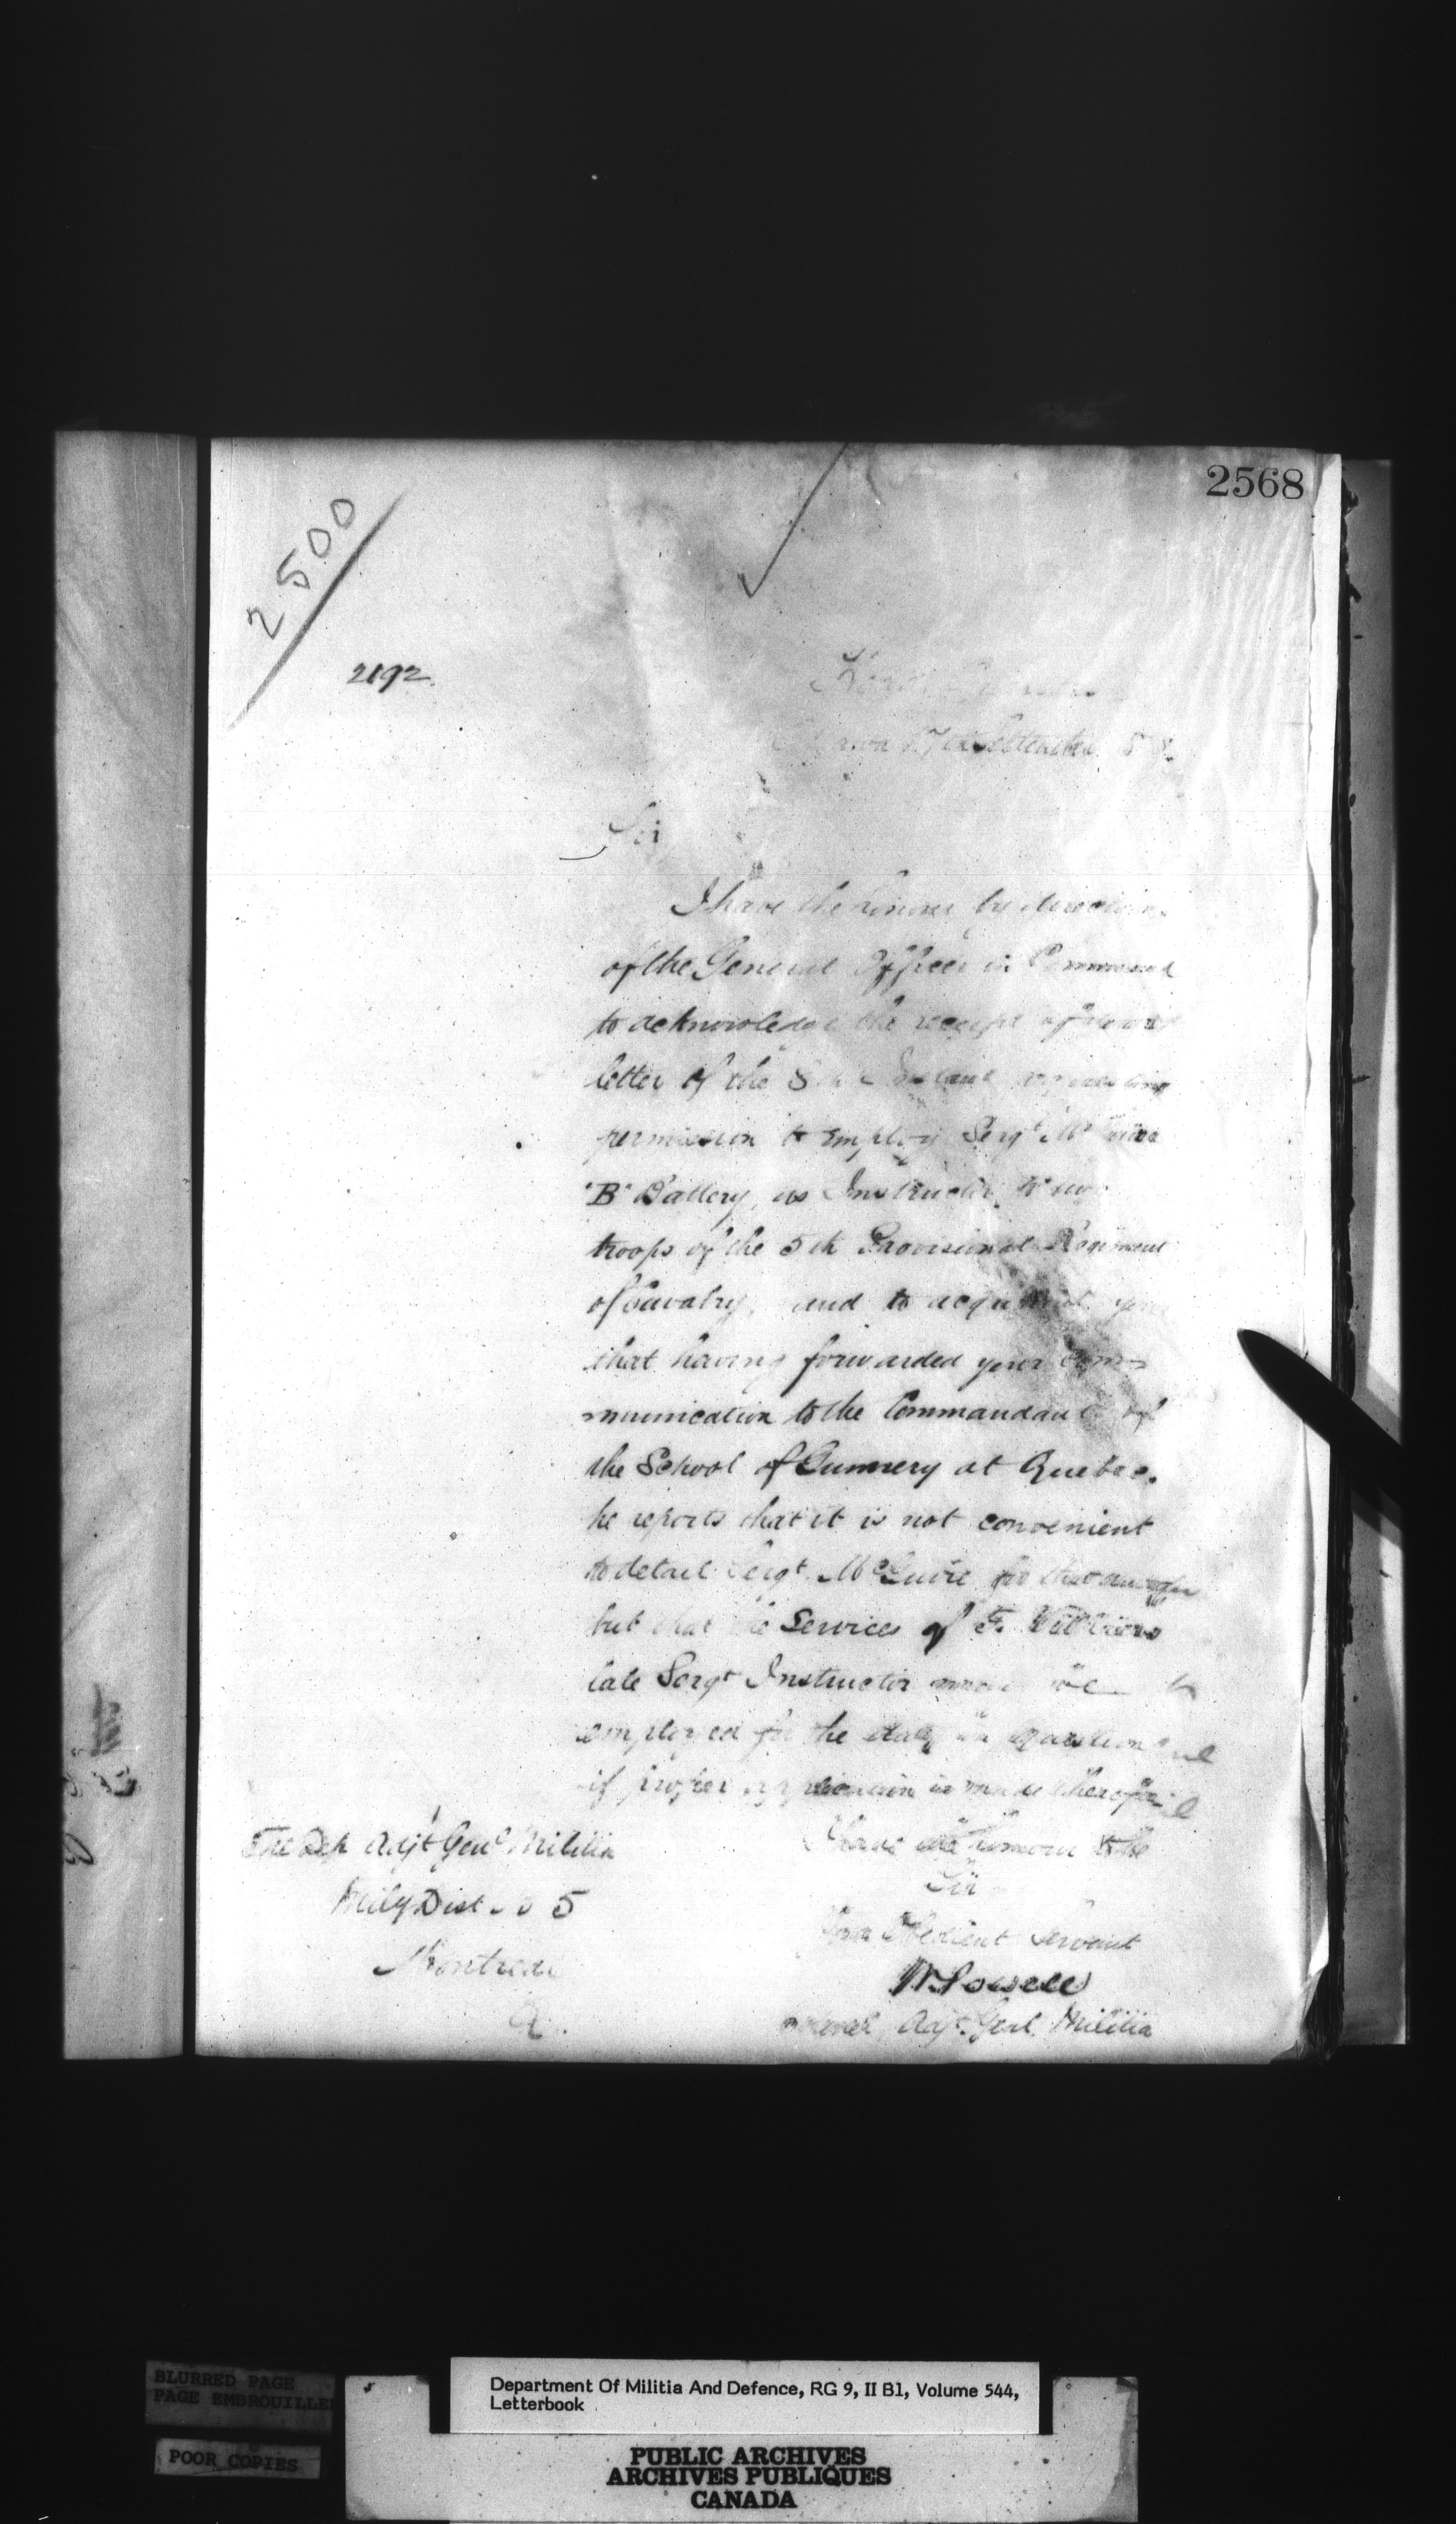 2568
2500
2192.
17th September
Sir
I have the honour by direction
of the General Officer in Command
to acknowledge the receipt of your
letter of the 8th Instant requesting
permission to employ Sergt Mc
"B" Battery, as Instructor to two
troops of the 5th Provisional Regiment
of Cavalry, and to acquaint you
that having forwarded your com-
munication to the Commandant of
the School of Gunnery at Quebec,
he reports that it is not convenient
to detail Sergt. McGuire for that
but that the Services of F.
late Sergt Instructor
employed for the duty in question
if proper application is made
The Dep Adjt Genl Militia
I have the honour to be
Sir
Mily Dist 5
Your Obedient Servant
Montreal
W Powell
Colonel, Adjt. Genl. Militia
BLURRED PAGE
PAGE EMBROUILLEE
POOR COPIES
Department Of Militia And Defence, RG 9, II B1, Volume 544,
Letterbook
PUBLIC ARCHIVES
ARCHIVES PUBLIQUES
CANADA